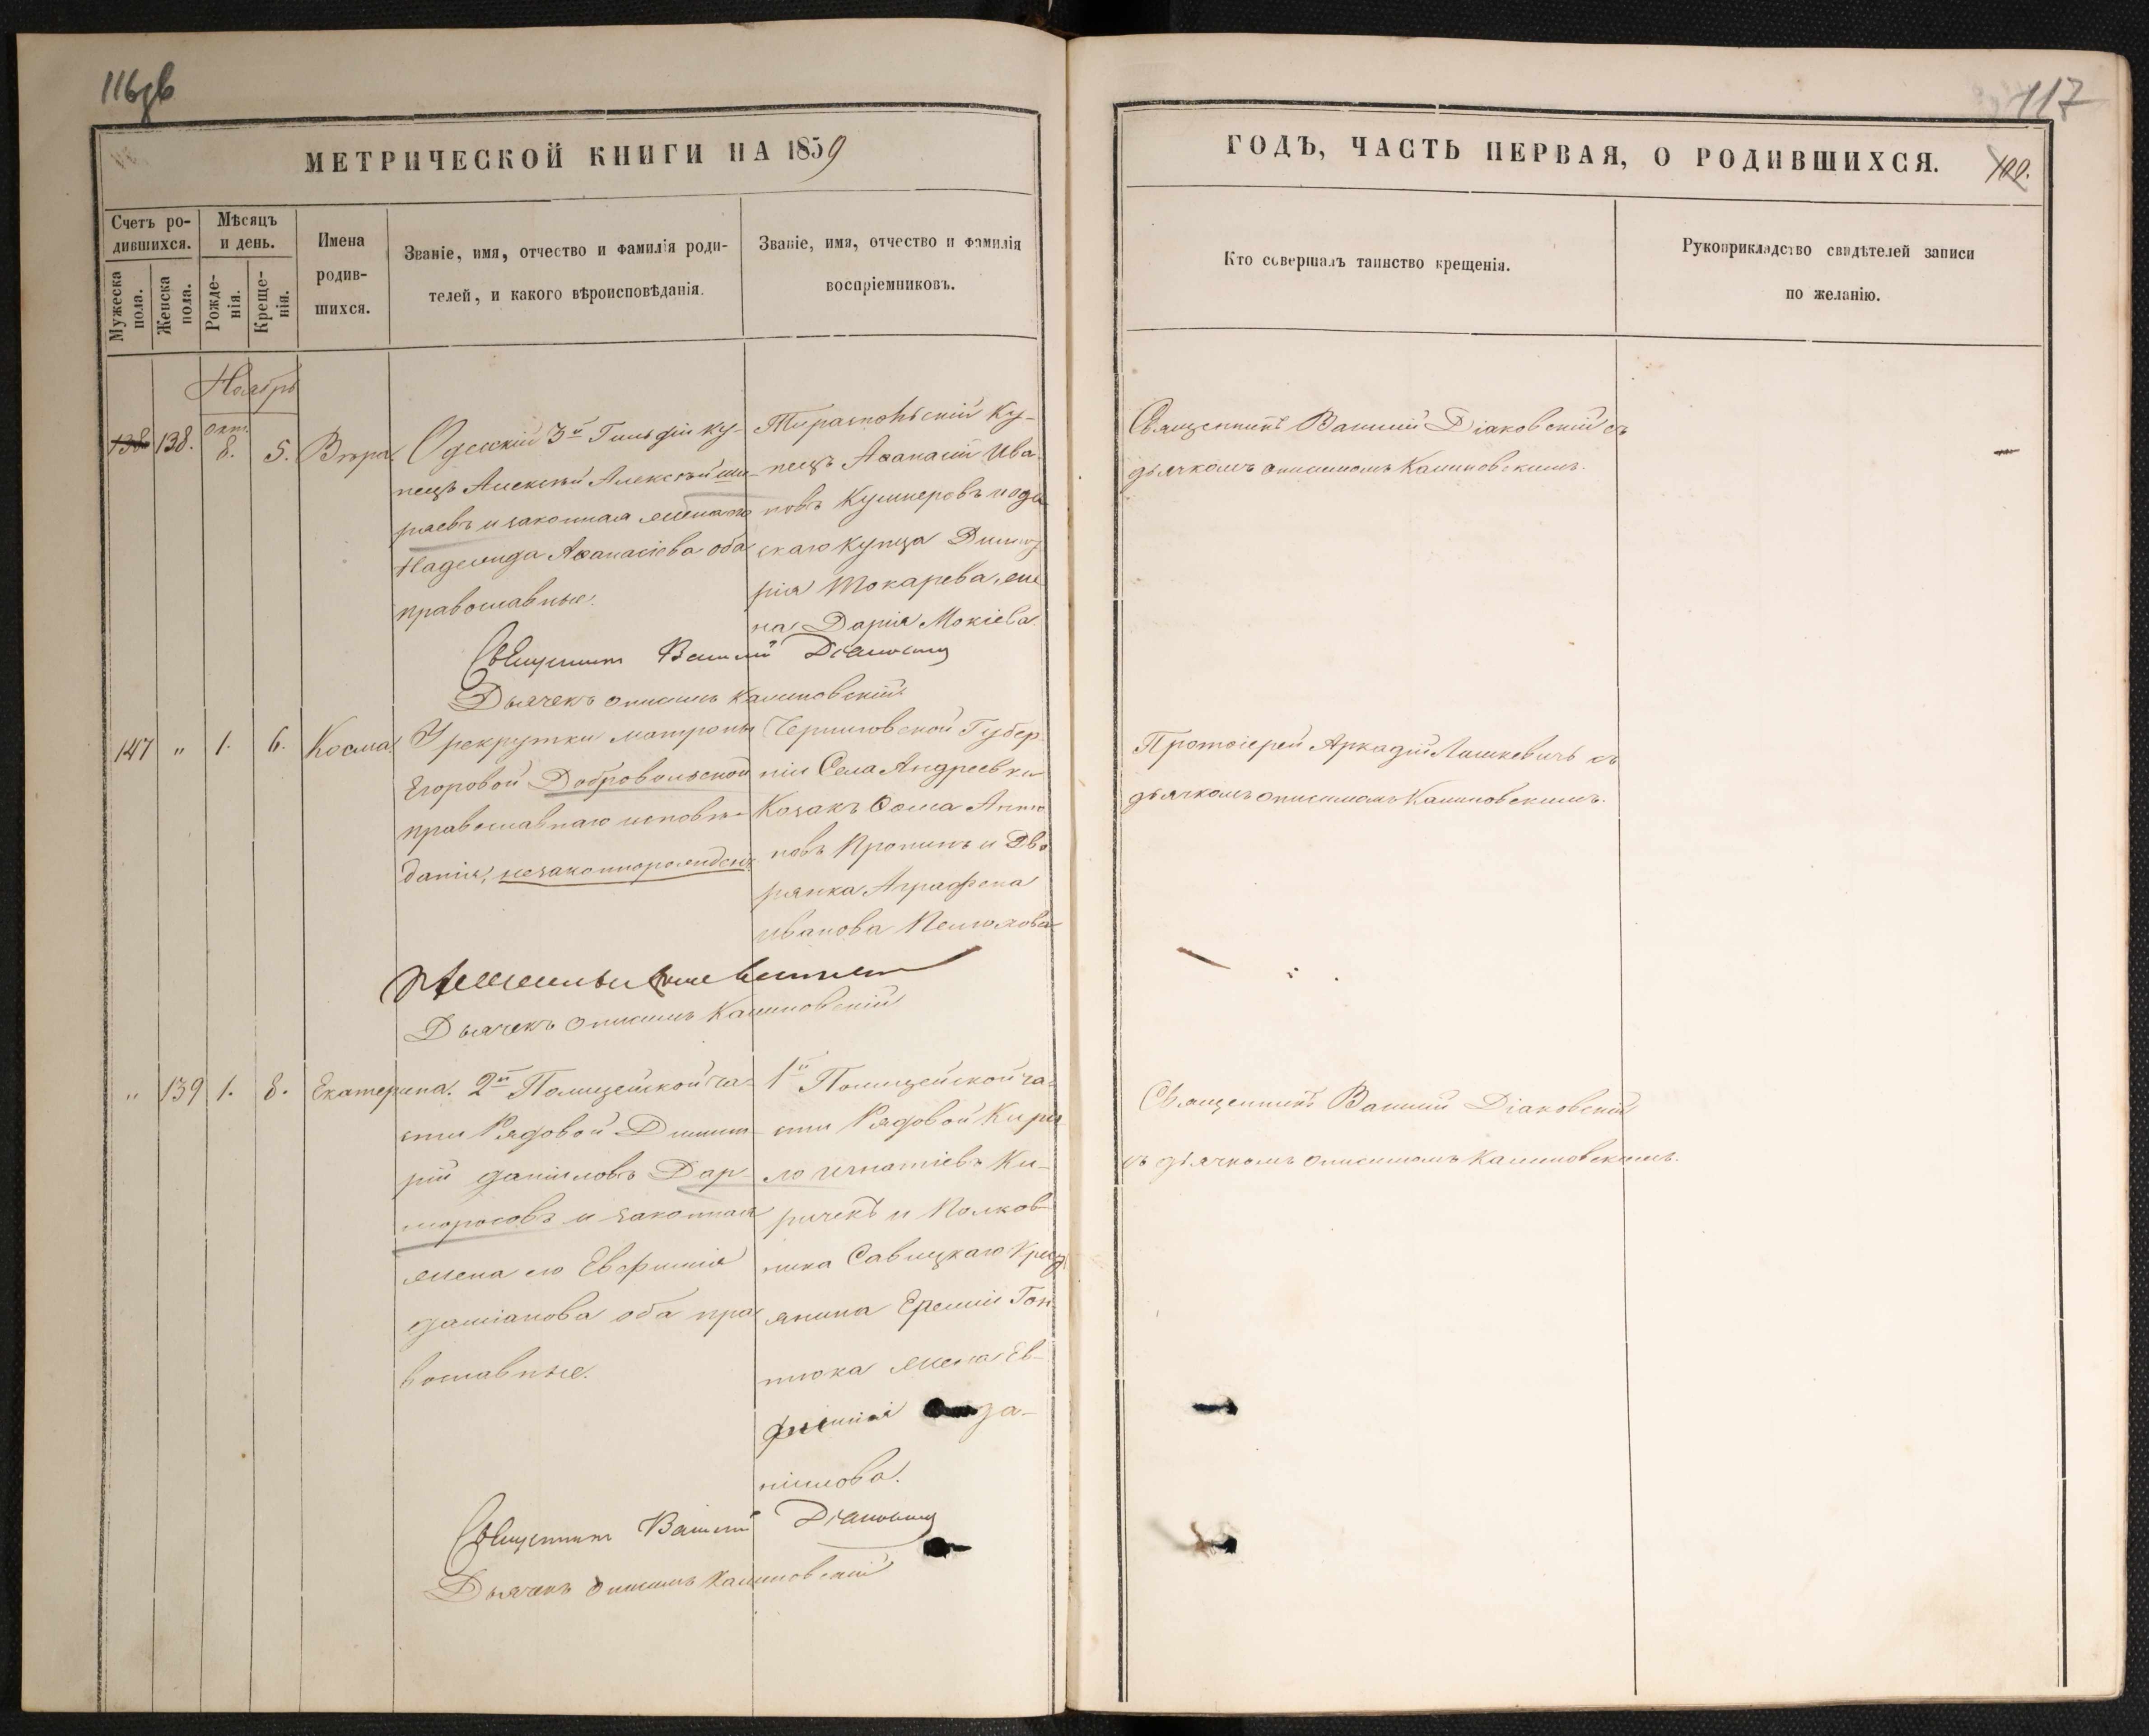 116 зв
117
МЕТРИЧЕСКОЙ КНИГИ НА 1859
ГОДЪ, ЧАСТЬ ПЕРВАЯ, О РОДИВШИХСЯ.
100.
Счетъ ро-
дившихся.
Мужеска
пола.
Женска
пола.
Мѣсяцъ
и день.
Рожде-
нія.
Креще-
нія.
Имена
родив-
шихся.
Званіе, имя, отчество и фамилія роди-
телей, и какого вѣроисповѣданія.
Званіе, имя, отчество и фамилія
воспріемниковъ.
Кто совершалъ таинство крещенія.
Рукоприкладство свидѣтелей записи
по желанію.
Ноябрь
138
138.
окт.
8.
5.
Вѣра.
Одесскій 3й Гильдіи ку-
пецъ Алексѣй Алексѣй Ши-
ряевъ и законная жена его
Надежда Аѳанасіева оба
православные.
Тираспольскій Ку-
пецъ Аѳанасій Ива
новъ Кушнеровъ и оде
скаго купца Димит
рія Токарева же
на Дарія Мокіева.
Священникъ Василій Діаковскій съ
дьячкомъ Онисимомъ Калиновскимъ.
Священникъ Василій Діаковскій
Дьячекъ Онисимъ Калиновскій
147
"
1.
6.
Косма.
У рекрутки Матроны
Егоровой Добровольской
православнаго исповѣ-
данія, незаконнорожденъ
Черниговской Губер
ніи Села Андреевки
Козакъ Ѳома Анто
новъ Пропинъ и Дво
рянка Аграфена
Иванова Пелюхова
Протоіерей Аркадій Лашкевичъ съ
дьячкомъ Онисимомъ Калиновскимъ.
Дьячекъ Онисимъ Калиновскій
"
139
1.
8.
Екатерина.
2й Полицейской ча-
сти Рядовой Димит-
рій Даніиловъ Дар-
моросовъ и законная
жена его Евфимія
Даміанова оба пра
вославные.
1й Полицейской ча-
сти Рядовой Кири
ло Игнатіевъ Ки-
ричекъ и Полков-
ника Савицкаго Крест
янина Ереміи Гон
тюка жена Ев-
фимія Да-
ніилова.
Священникъ Василій Діаковскій
съ дьячкомъ Онисимомъ Калиновскимъ.
Священникъ Василій Діаковскій
Дьячекъ Онисимъ Калиновскій